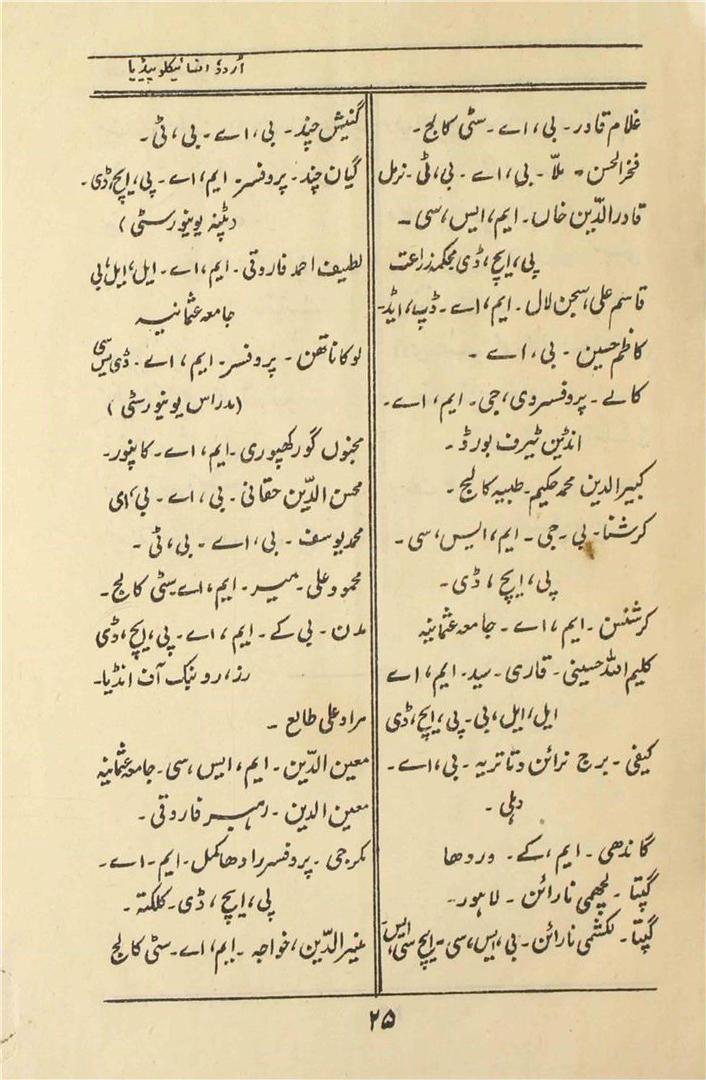 اُردو انسائیکلوپیڈیا
غلام قادر۔ بی، اے۔ سٹی کالج۔
فخرالحسن۔ ملّا۔ بی، اے۔ بی، ٹی۔ نرمل
قادرالدّین خاں۔ ایم، ایس، سی۔
پی، ایچ، ڈی محکمہ زراعت
قاسم علی، سجن لال۔ ایم، اے۔ ڈپ، ایڈ۔
کاظم حسین۔ بی، اے۔
کالے۔ پروفسر وی، جی۔ ایم، اے۔
انڈین ٹیرف بورڈ۔
کبیر الدین محمد حکیم۔ طبیہ کالج۔
کرشنا۔ بی۔ جی۔ ایم، ایس، سی۔
پی، ایچ، ڈی۔
کرشنن۔ ایم، اے۔ جامعہ عثمانیہ
کلیم اللہ حسینی۔ قاری۔ سید۔ ایم، اے
ایل، ایل، بی۔ پی، ایچ، ڈی
کیفی۔ برج نرائن دتاتریہ۔ بی، اے۔
دہلی۔
گاندھی۔ ایم، کے۔ وردھا
گپتا۔ لچھمی نارائن۔ لاہور۔
گپتا۔ لکشمی نارائن۔ بی، یس، سی۔ ایچ سی، ایس
گنیش چند۔ بی، اے۔ بی، ٹی۔
گیان چند۔ پروفسر۔ ایم، اے۔ پی، ایچ، ڈی۔
(پٹنہ یونیورسٹی)
لطیف احمد فاروقی۔ ایم، اے۔ ایل، ایل، بی
جامعہ عثمانیہ
لوکاناتھن۔ پروفسر۔ ایم، اے۔ ڈی یس سی
(مدراس یونیورسٹی)
مجنوں گورکھپوری۔ ایم، اے۔ کانپور۔
محسن الدّین حقانی۔ بی، اے۔ بی، ای
محمد یوسف۔ بی، اے۔ بی، ٹی۔
محمود علی۔ میر۔ ایم، اے سٹی کالج۔
مدن۔ بی کے۔ ایم، اے۔ پی، ایچ، ڈی
رزرو بنک آف انڈیا۔
مراد علی طالع۔
معین الدّین۔ ایم، ایس، سی۔ جامعہ عثمانیہ
معین الدین۔ رہبر فاروقی۔
مکرجی۔ پروفسر رادھا کمل۔ ایم۔ اے۔
پی، ایچ، ڈی۔ کلکتہ۔
منیر الدّین، خواجہ۔ ایم، اے۔ سٹی کالج
۲۵